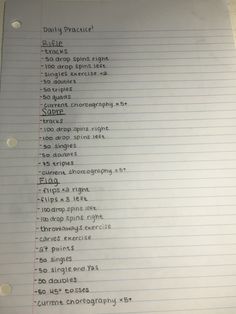 Daily Practice!
Rifle
-tracks
-50 drop spins right
-100 drop spins left
-singles exercise x2
-50 doubles
-50 triples
-50 quads
-current choreography x5+
Sabre
-tracks
-100 drop spins right
-100 drop spins left
-50 singles
-50 doubles
-75 triples
-current choreography x5+
Flag
-flips x3 right
-flips x3 left
-100 drop spins left
-100 drop spins right
-throwaways exercise
-carves exercise
-27 points
-50 singles
-50 single and
-50 doubles
-50 45° tosses
-current choreography x5+